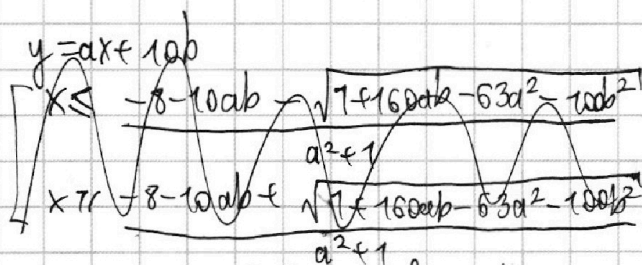 y = ax + 10b
[ x ≤ (-8 - 10ab - √(1 + 160ab - 63a² - 100b²)) / (a² + 1)
x ≥ (-8 - 10ab + √(1 + 160ab - 63a² - 100b²)) / (a² + 1)